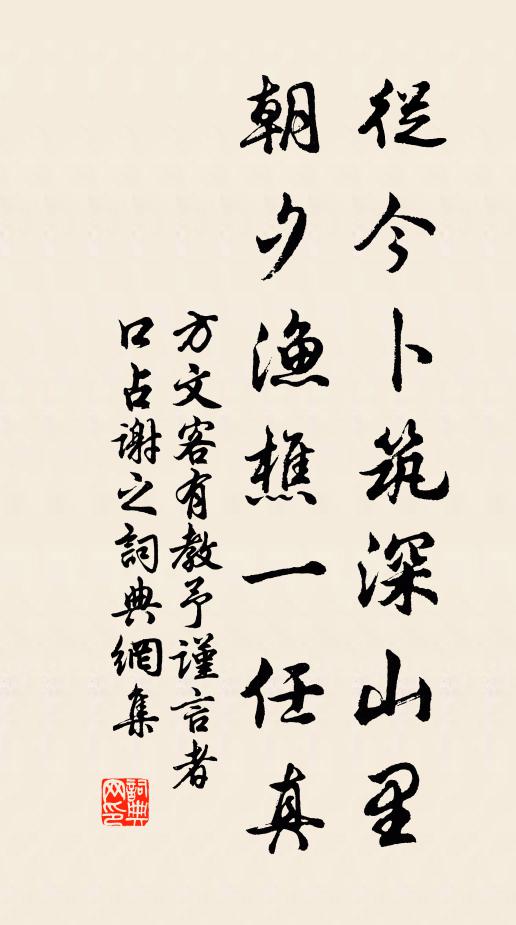 從今卜筑深山里
朝夕漁樵一任真
方文客有教予謹言者
口占謝之詞典網集
詞典网印